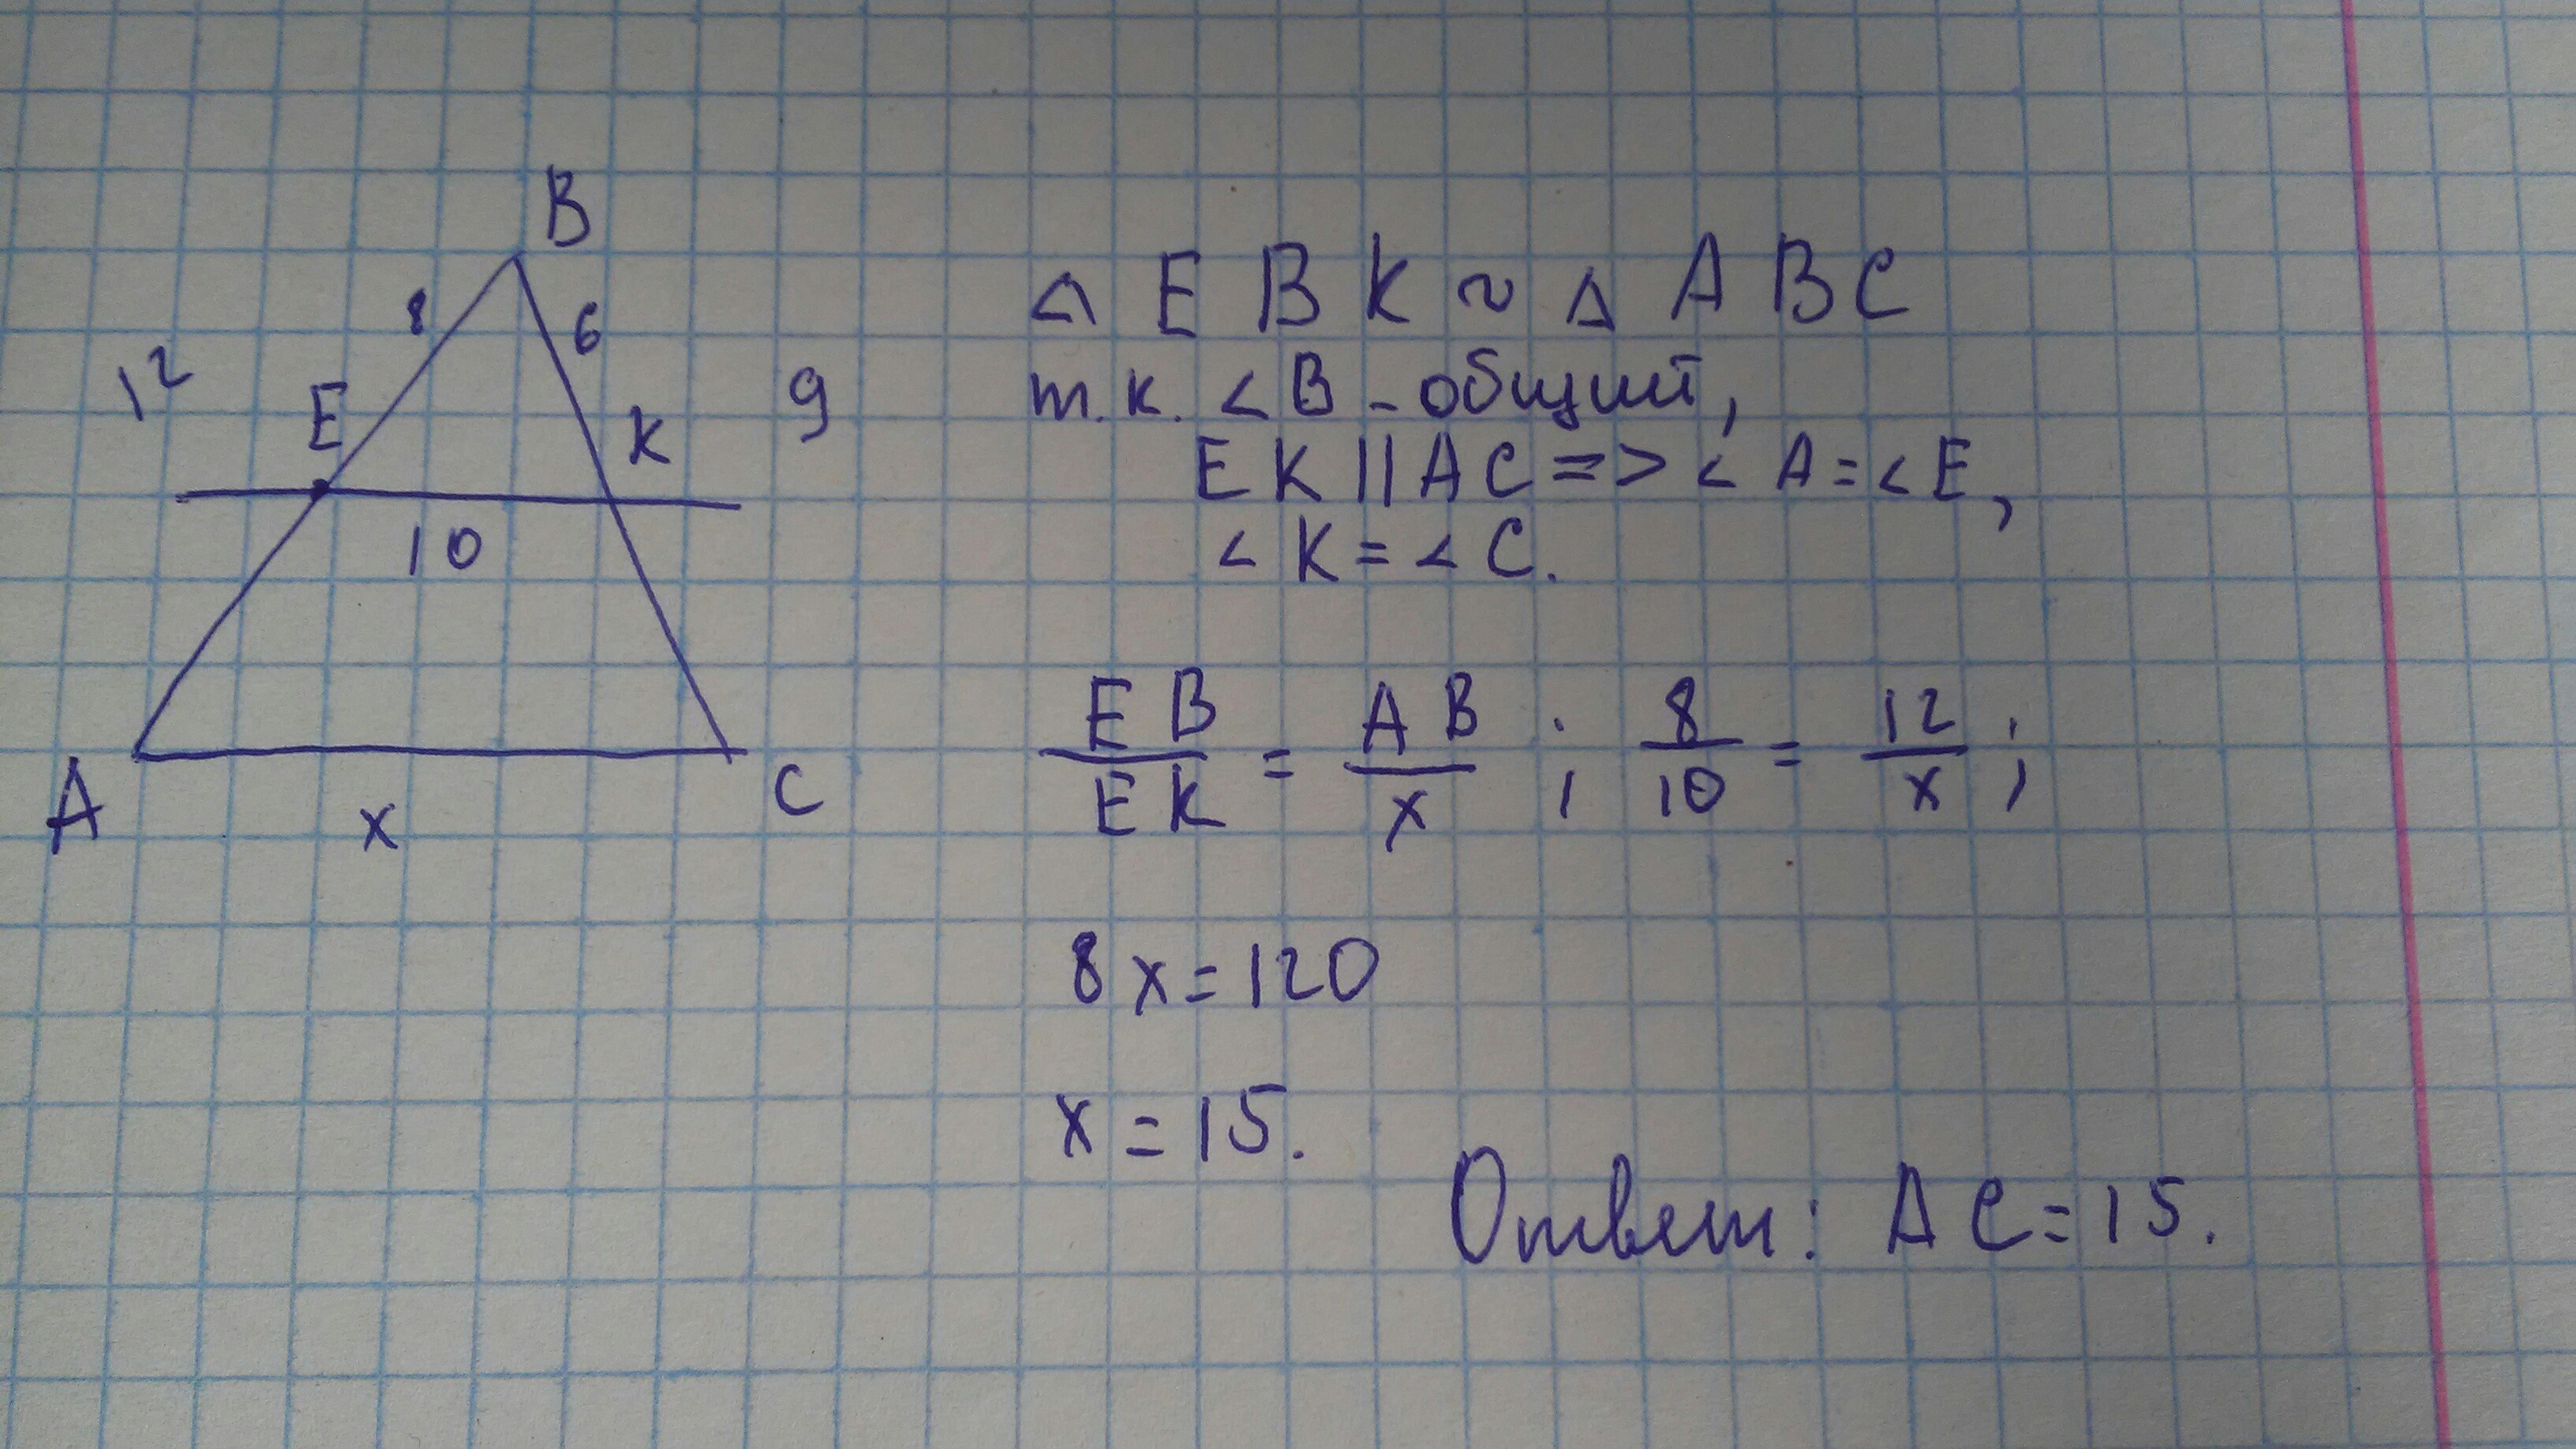 B
8
6
12
E
K
9
10
A
x
C
△ EBK ~ △ ABC
т.к. <B - общий,
EK || AC => <A = <E,
<K = <C.
EB/EK = AB/x ; 8/10 = 12/x ;
8x = 120
x = 15.
Ответ: AC = 15.